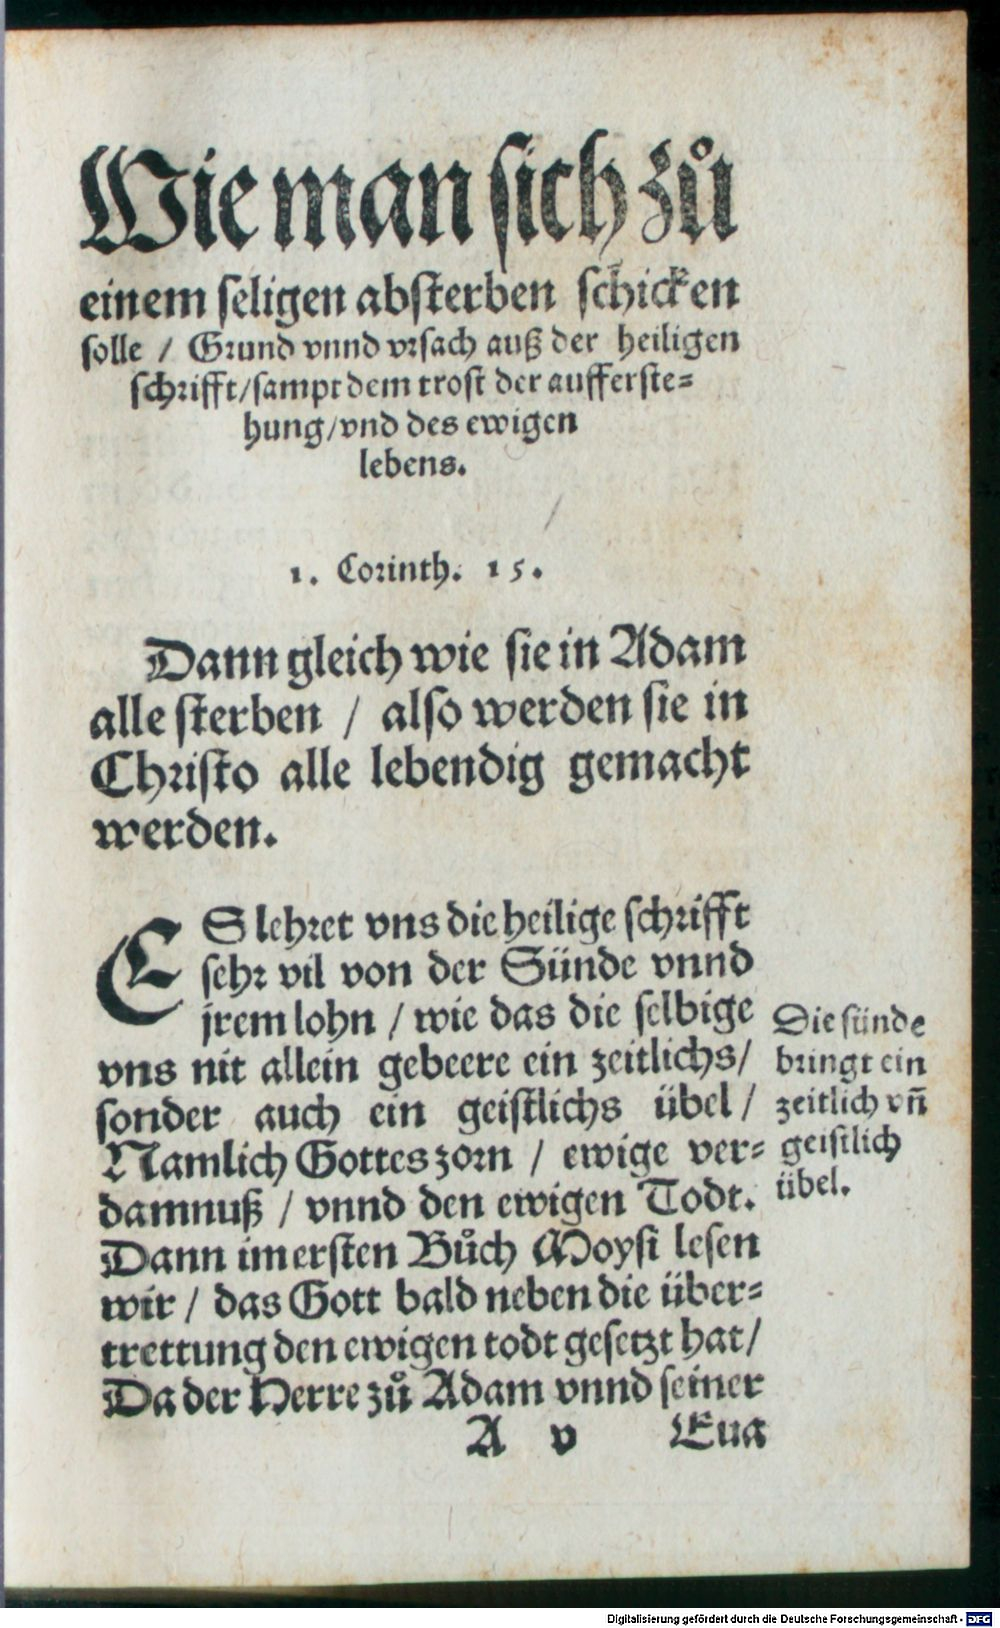 Wie man sich zů
einem seligen absterben schicken
solle / Grund vnnd vrsach auß der heiligen
schrifft/sampt dem trost der aufferste=
hung/vnd des ewigen
lebens.
1. Corinth. 15.
Dann gleich wie sie in Adam
alle sterben / also werden sie in
Christo alle lebendig gemacht
werden.
ES lehret vns die heilige schrifft
sehr vil von der Sünde vnnd
jrem lohn / wie das die selbige
vns nit allein gebeere ein zeitlichs/
sonder auch ein geistlichs übel /
Namlich Gottes zorn / ewige ver=
damnuß / vnnd den ewigen Todt.
Dann im ersten Bůch Moysi lesen
wir / das Gott bald neben die über=
trettung den ewigen todt gesetzt hat/
Da der Herre zů Adam vnnd seiner
A v Eua
Die sünde
bringt ein
zeitlich vñ
geistlich
übel.
Digitalisierung gefördert durch die Deutsche Forschungsgemeinschaft - DFG